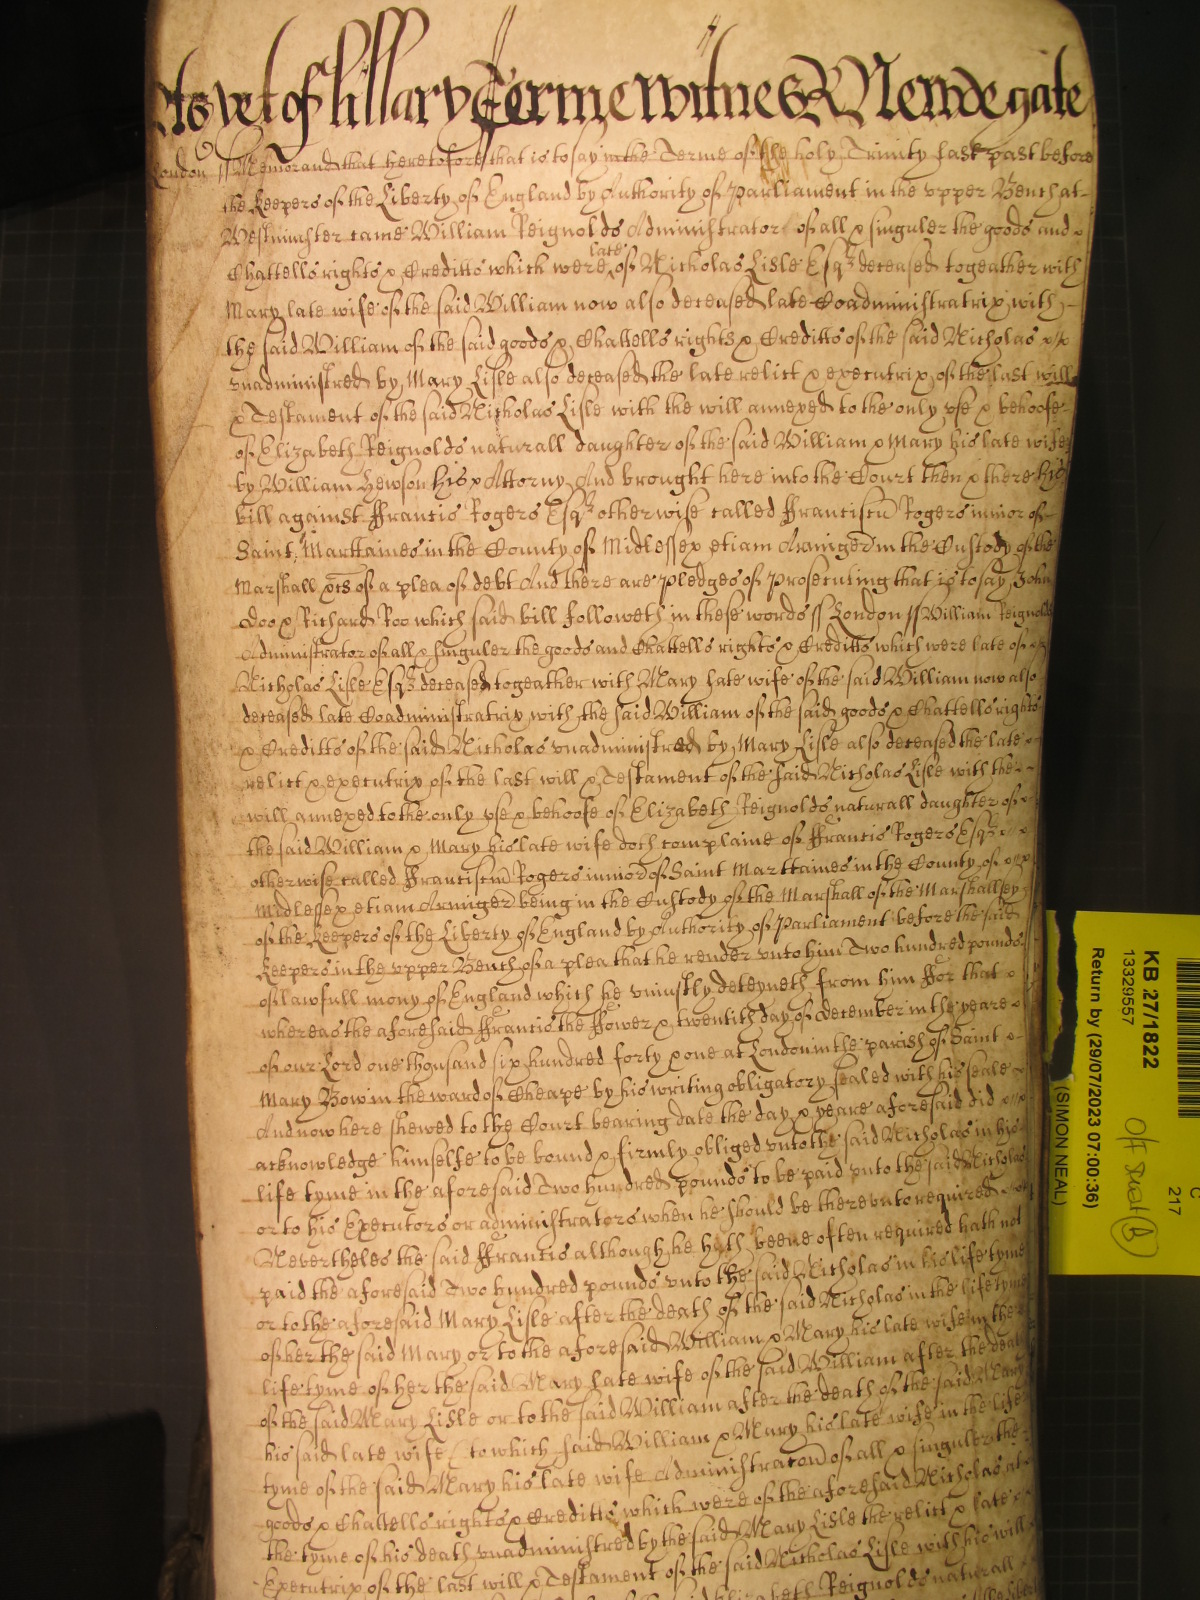 As yet of hillary Terme Witnes R Newdegate
London ss Memorand that heretofore that is to say in the Terme of the holy Trinity last past before
the Keepers of the Liberty of England by Authority of Parliament in the vpper Bench at
Westminster came William Reignolds Administrator of all & singuler the goods and
Chattells rights & Creditts which were late of Nicholas Lisle Esqr deceased togeather with
Mary late wife of the said William now also deceased late Coadministratrix with
the said William of the said goods & Chattells rights & Creditts of the said Nicholas
vnadministred by Mary Lisle also deceased the late relict & executrix of the last will
& Testament of the said Nicholas Lisle with the will annexed to the only vse & behoofe
of Elizabeth Reignolds naturall daughter of the said William & Mary his late wife
by William Hewson his Attorny And brought here into the Court then & there his
bill against Francis Rogers Esqr otherwise called Franciscu Rogers iunior of
Saint Marttaines in the County of Midlessex etiam Armiger in the Custody of the
Marshall &c of a plea of debt And there are pledges of prosecuting that is to say John
Doo & Richard Roo which said bill followeth in these words ss London ss William Reignolds
Administrator of all & singuler the goods and Chattells rights & Creditts which were late of
Nicholas Lisle Esqr deceased togeather with Mary late wife of the said William now also
deceased late Coadministratrix with the said William of the said goods & Chattells rights
& Creditts of the said Nicholas vnadministred by Mary Lisle also deceased the late
relict & executrix of the last will & Testament of the said Nicholas Lisle with the
will annexed to the only vse & behoofe of Elizabeth Reignolds naturall daughter of
the said William & Mary his late wife doth complaine of Francis Rogers Esqr
otherwise called Franciscum Rogers iunior of Saint Marttaines in the County of
Midlessex etiam Armiger being in the Custody of the Marshall of the Marshallsey
of the Keepers of the Liberty of England by Authority of Parliament before the said
Keepers in the vpper Bench of a plea that he render vnto him Two hundred pounds
of lawfull mony of England which he vniustly deteyneth from him For that
whereas the aforesaid Francis the Fower & twentith day of December in the yeare
of our Lord one thousand six hundred forty & one at London in the parish of Saint
Mary Bow in the ward of Cheape by his writing obligatory sealed with his seale
And now here shewed to the Court bearing date the day & yeare aforesaid did
acknowledge himselfe to be bound & firmly obliged vnto the said Nicholas in his
life tyme in the aforesaid Two hundred pounds to be paid vnto the said Nicholas
or to his Executors or administrators when he should be therevnto required
Nevertheles the said Francis although he hath beene often required hath not
paid the aforesaid Two hundred pounds vnto the said Nicholas in his life tyme
or to the aforesaid Mary Lisle after the death of the said Nicholas in the life tyme
of her the said Mary or to the aforesaid William & Mary his late wife in the
life tyme of her the said Mary late wife of the said William after the death
of the said Mary Lisle or to the said William after the death of the said Mary
his said late wife (to which said William & Mary his late wife in the life
tyme of the said Mary his late wife Administracon of all & singuler the
goods & Chattells rights & Creditts which were of the aforesaid Nicholas at
the tyme of his death vnadministred by the said Mary Lisle the relict & late
Executrix of the last will & Testament of the said Nicholas Lisle with his will
Elizabeth Reignolds naturall
KB 27/1822
13329557
Return by (29/07/2023 07:00:36)
(SIMON NEAL)
C
217